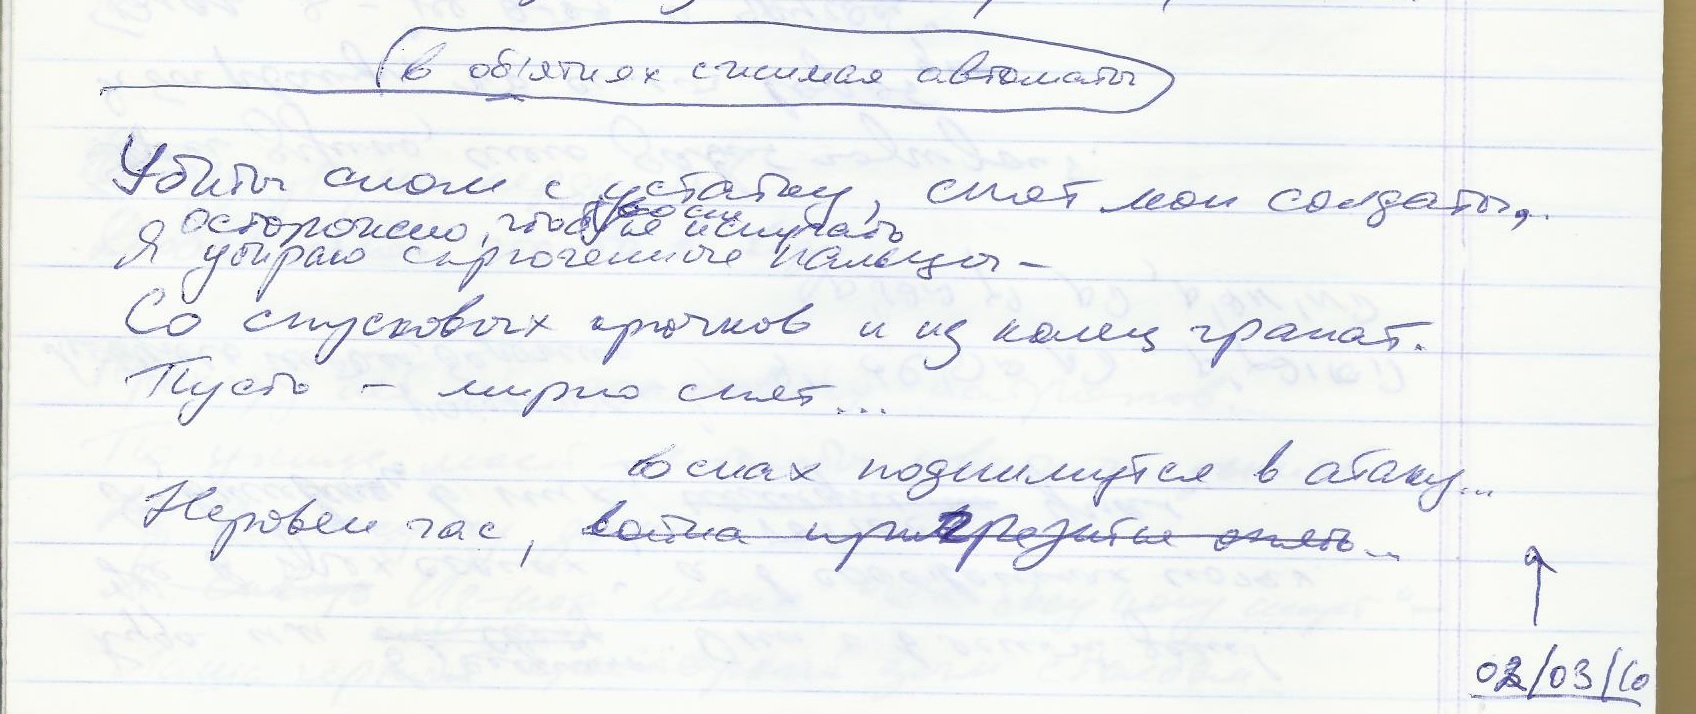 в об'ятиях сжимая автоматы
Убиты сном с устатку, спят мои солдаты,..
осторожно, чтоб не испугать
Я убираю скрюченные пальцы –
Со спусковых крючков и из колец гранат.
Пусть – мирно спят...
во снах поднимутся в атаку...
Неровен час, война пригрезится опять...
03/10